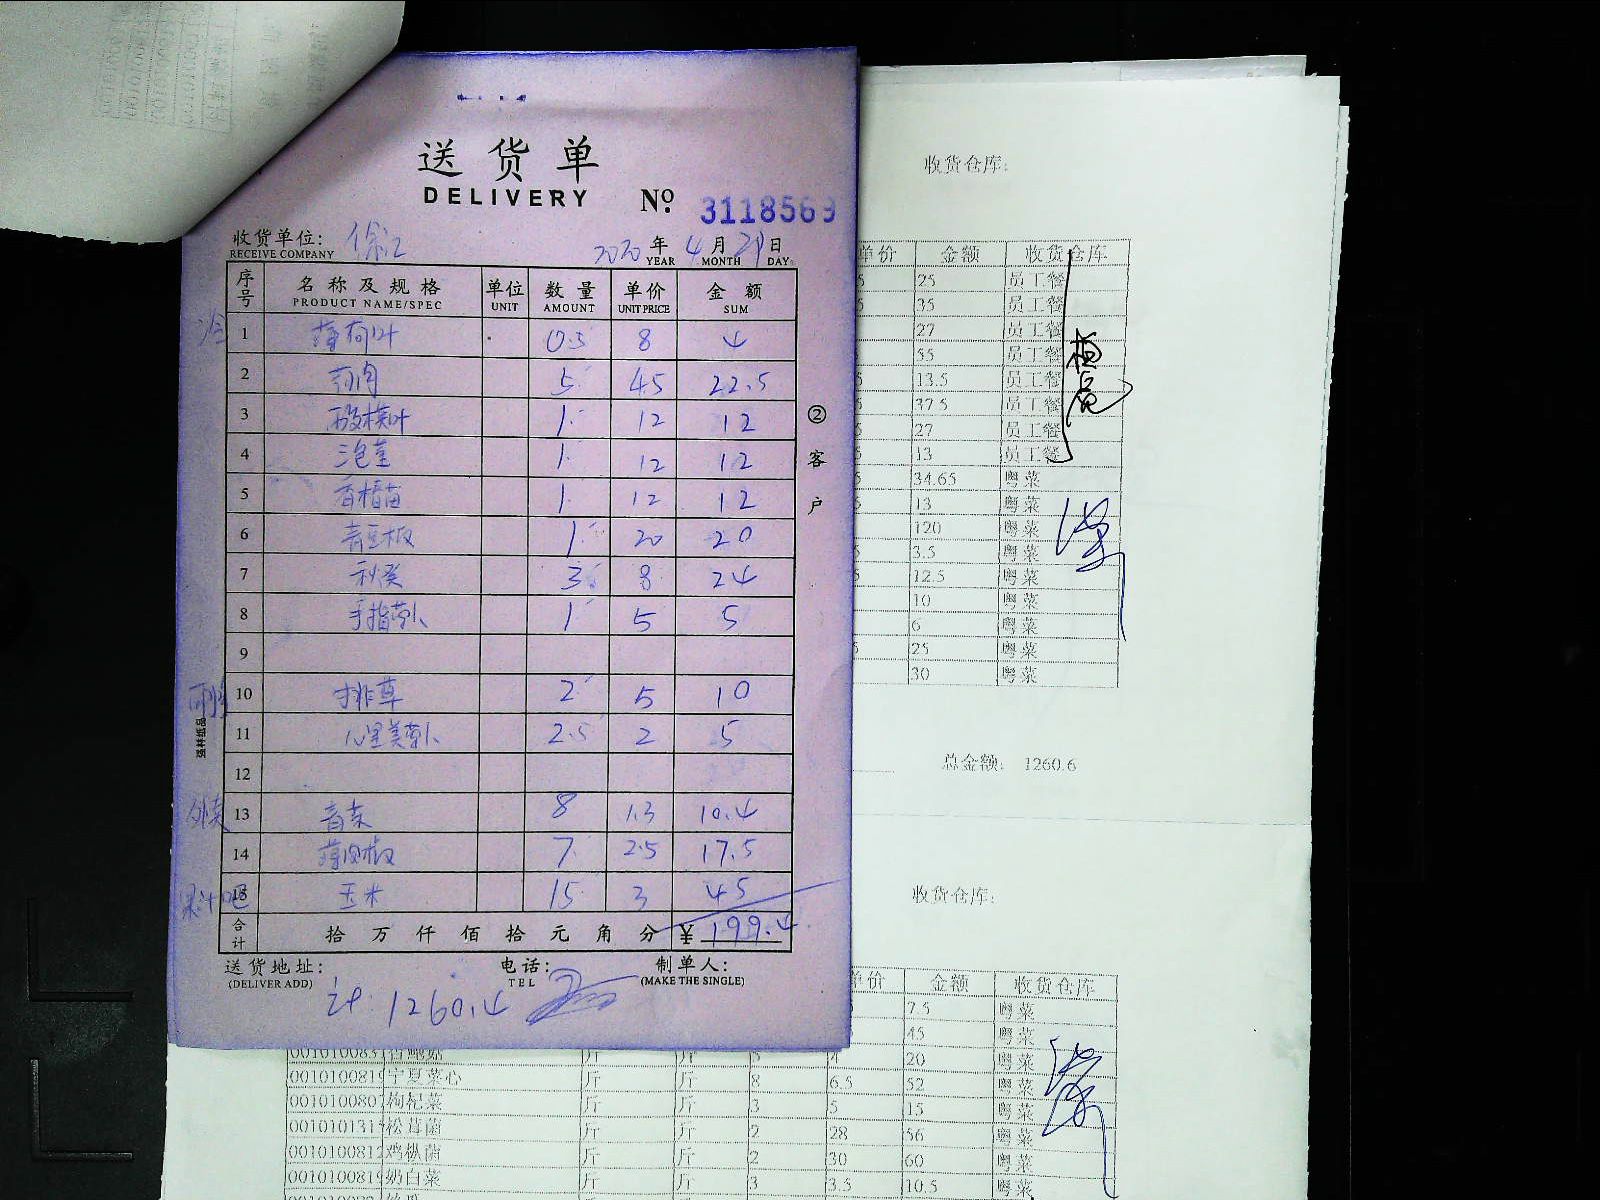 送货单
DELIVERY
№ 3118569
收货单位: 徐汇
RECEIVE COMPANY
2020 年 4 月 21 日
YEAR MONTH DAY
序号 名称及规格 单位 数量 单价 金额
PRODUCT NAME/SPEC UNIT AMOUNT UNIT PRICE SUM
1 薄荷叶 0.5 8 4
2 5 4.5 22.5
3 酸模叶 1 12 12
4 1 12 12
5 1 12 12
6 1 20 20
7 秋葵 3 8 24
8 手指萝卜 1 5 5
9
10 排草 2 5 10
11 心里美萝卜 2.5 2 5
12
外卖 13 青菜 8 1.3 10.4
14 薄肉椒 7 2.5 17.5
果汁吧 15 玉米 15 3 45
合计 拾万仟佰拾元角分 ¥ 199.4
送货地址: 电话: 制单人:
(DELIVER ADD) TEL (MAKE THE SINGLE)
计 1260.4
② 客户
强林纸品
收货仓库:
单价 金额 收货仓库
25 员工餐
35 员工餐
27 员工餐
55 员工餐
13.5 员工餐
37.5 员工餐
27 员工餐
13 员工餐
34.65 粤菜
13 粤菜
120 粤菜
3.5 粤菜
12.5 粤菜
10 粤菜
6 粤菜
25 粤菜
30 粤菜
总金额: 1260.6
收货仓库:
单价 金额 收货仓库
7.5 粤菜
45 粤菜
20 粤菜
0010100819 宁夏菜心 斤 斤 8 6.5 52 粤菜
001010080 枸杞菜 斤 斤 3 5 15 粤菜
001010131 松茸菌 斤 斤 2 28 56 粤菜
001010081 鸡枞菌 斤 斤 2 30 60 粤菜
0010100819 奶白菜 斤 斤 3 3.5 10.5 粤菜